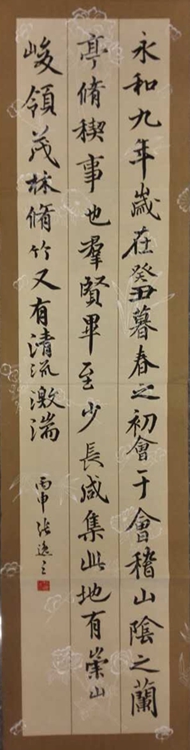 永和九年歲在癸丑暮春之初會于會稽山陰之蘭
亭脩稧事也羣賢畢至少長咸集此地有崇山
峻領茂林脩竹又有清流激湍
丙申張逸之